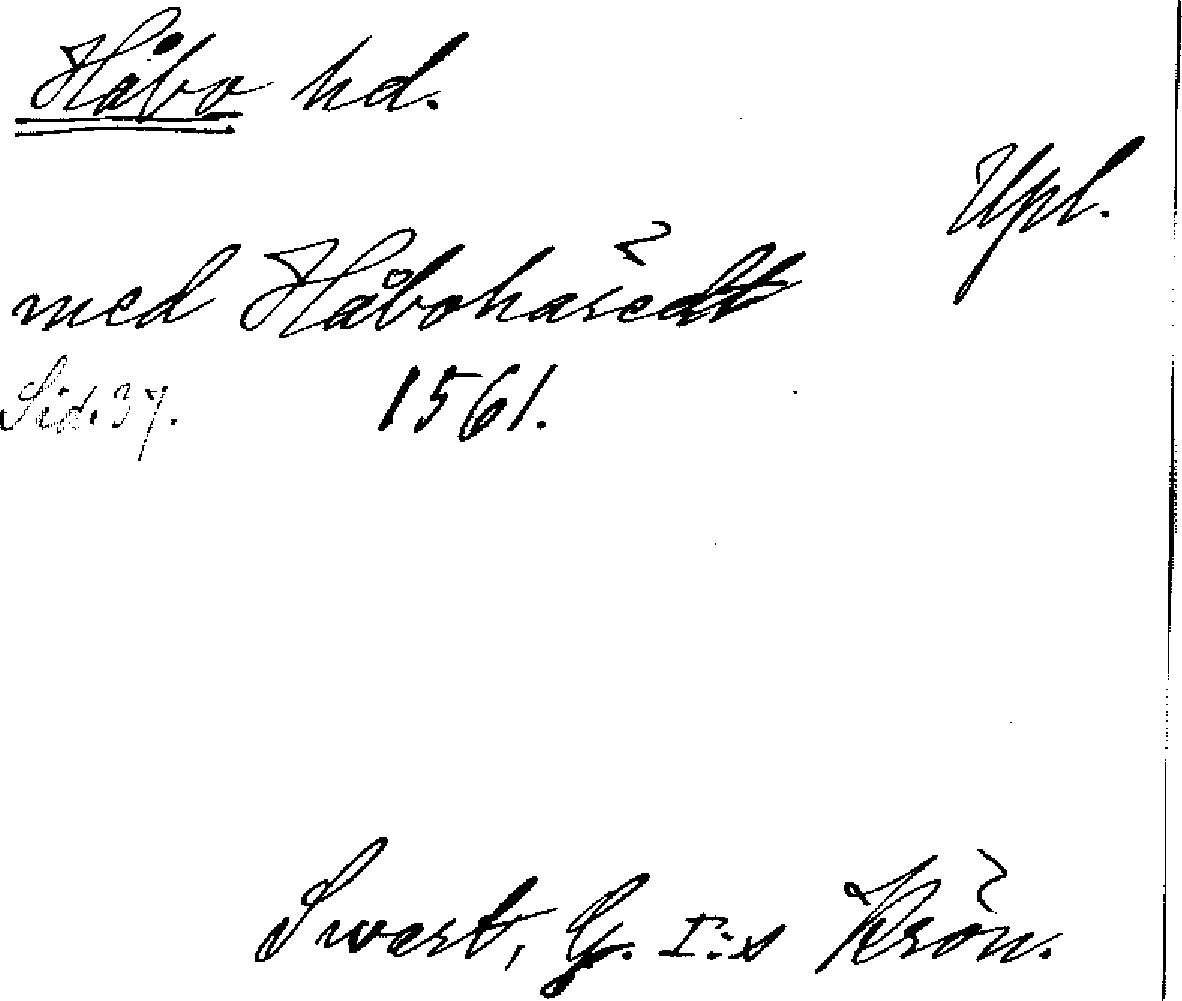 Håbo hd.
Upl.
med Håbohäredt
Sid. 37. 1561.
Swart, G. I:s Krön.